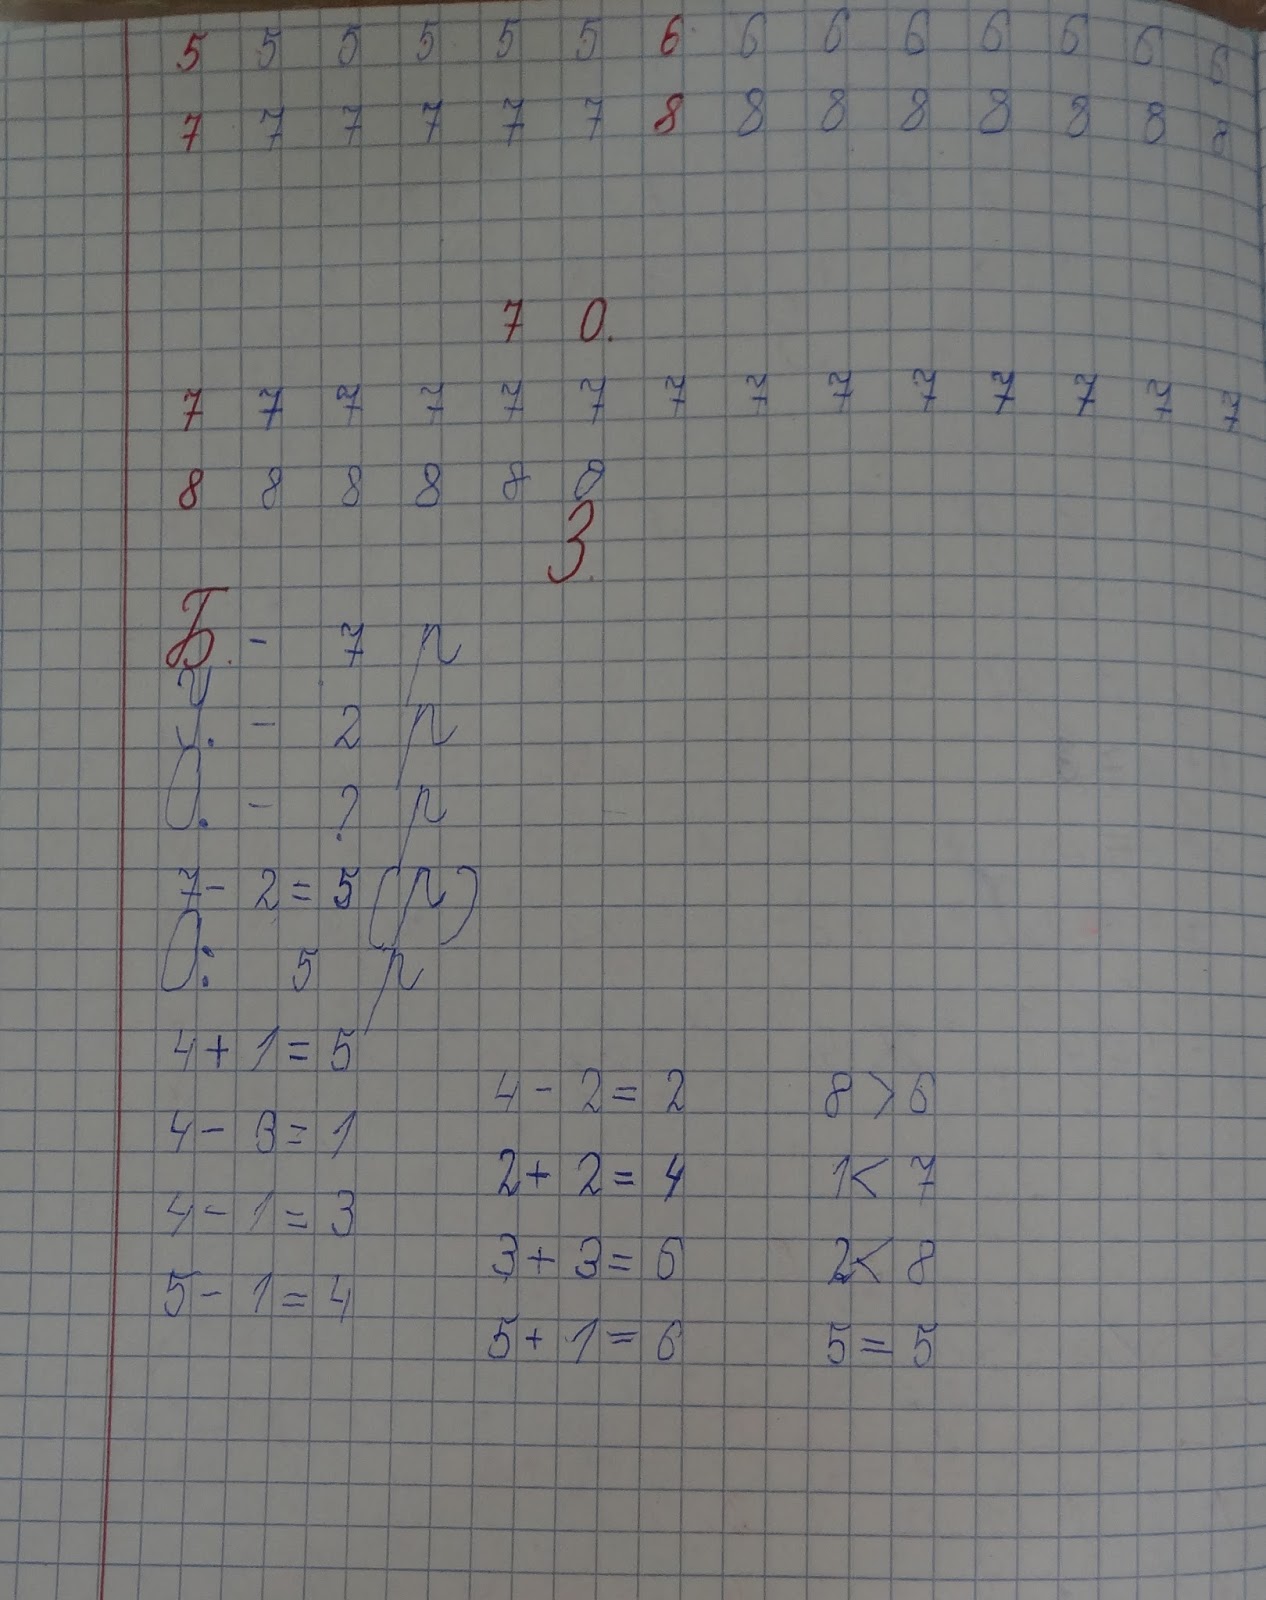 5 5 5 5 5 5 6 6 6 6 6 6 6 6
7 7 7 7 7 7 8 8 8 8 8 8 8 8
7 0.
7 7 7 7 7 7 7 7 7 7 7 7 7 7
8 8 8 8 8 8
З.
Б. - 7 р
У. - 2 р
О. - ? р
7 - 2 = 5 (р)
О: 5 р
4 + 1 = 5
4 - 3 = 1
4 - 1 = 3
5 - 1 = 4
4 - 2 = 2
2 + 2 = 4
3 + 3 = 6
5 + 1 = 6
8 > 6
1 < 7
2 < 8
5 = 5